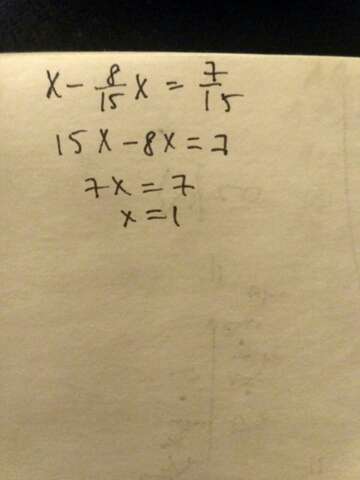 x - 8/15 x = 7/15
15x - 8x = 7
7x = 7
x = 1